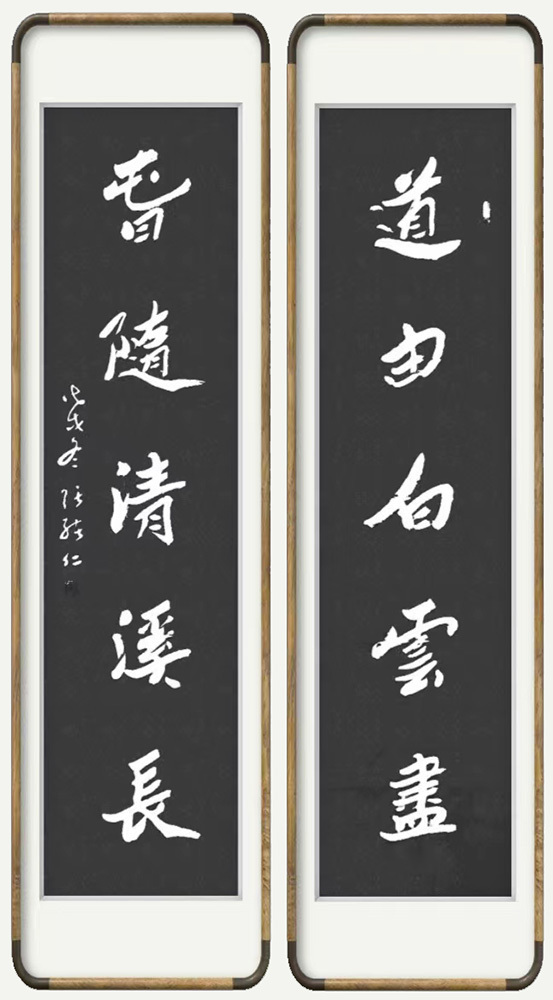 道由白雲盡
旾隨清溪長
戊戌冬 張 仁